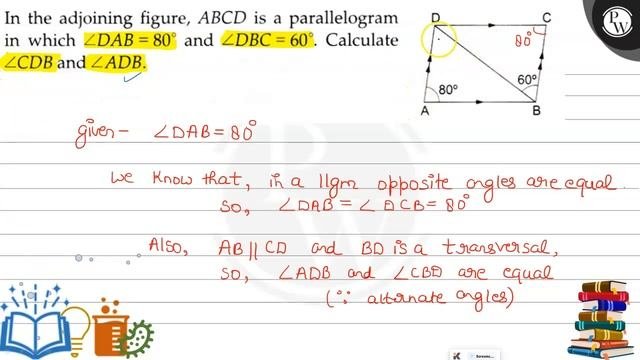 In the adjoining figure, ABCD is a parallelogram
in which ∠DAB = 80° and ∠DBC = 60°. Calculate
∠CDB and ∠ADB.
D C
80°
60°
80°
A B
PW
given - ∠DAB = 80°
We know that, in a llgm opposite angles are equal.
so, ∠DAB = ∠DCB = 80°
Also, AB || CD and BD is a transversal,
so, ∠ADB and ∠CBD are equal
(∵ alternate angles)